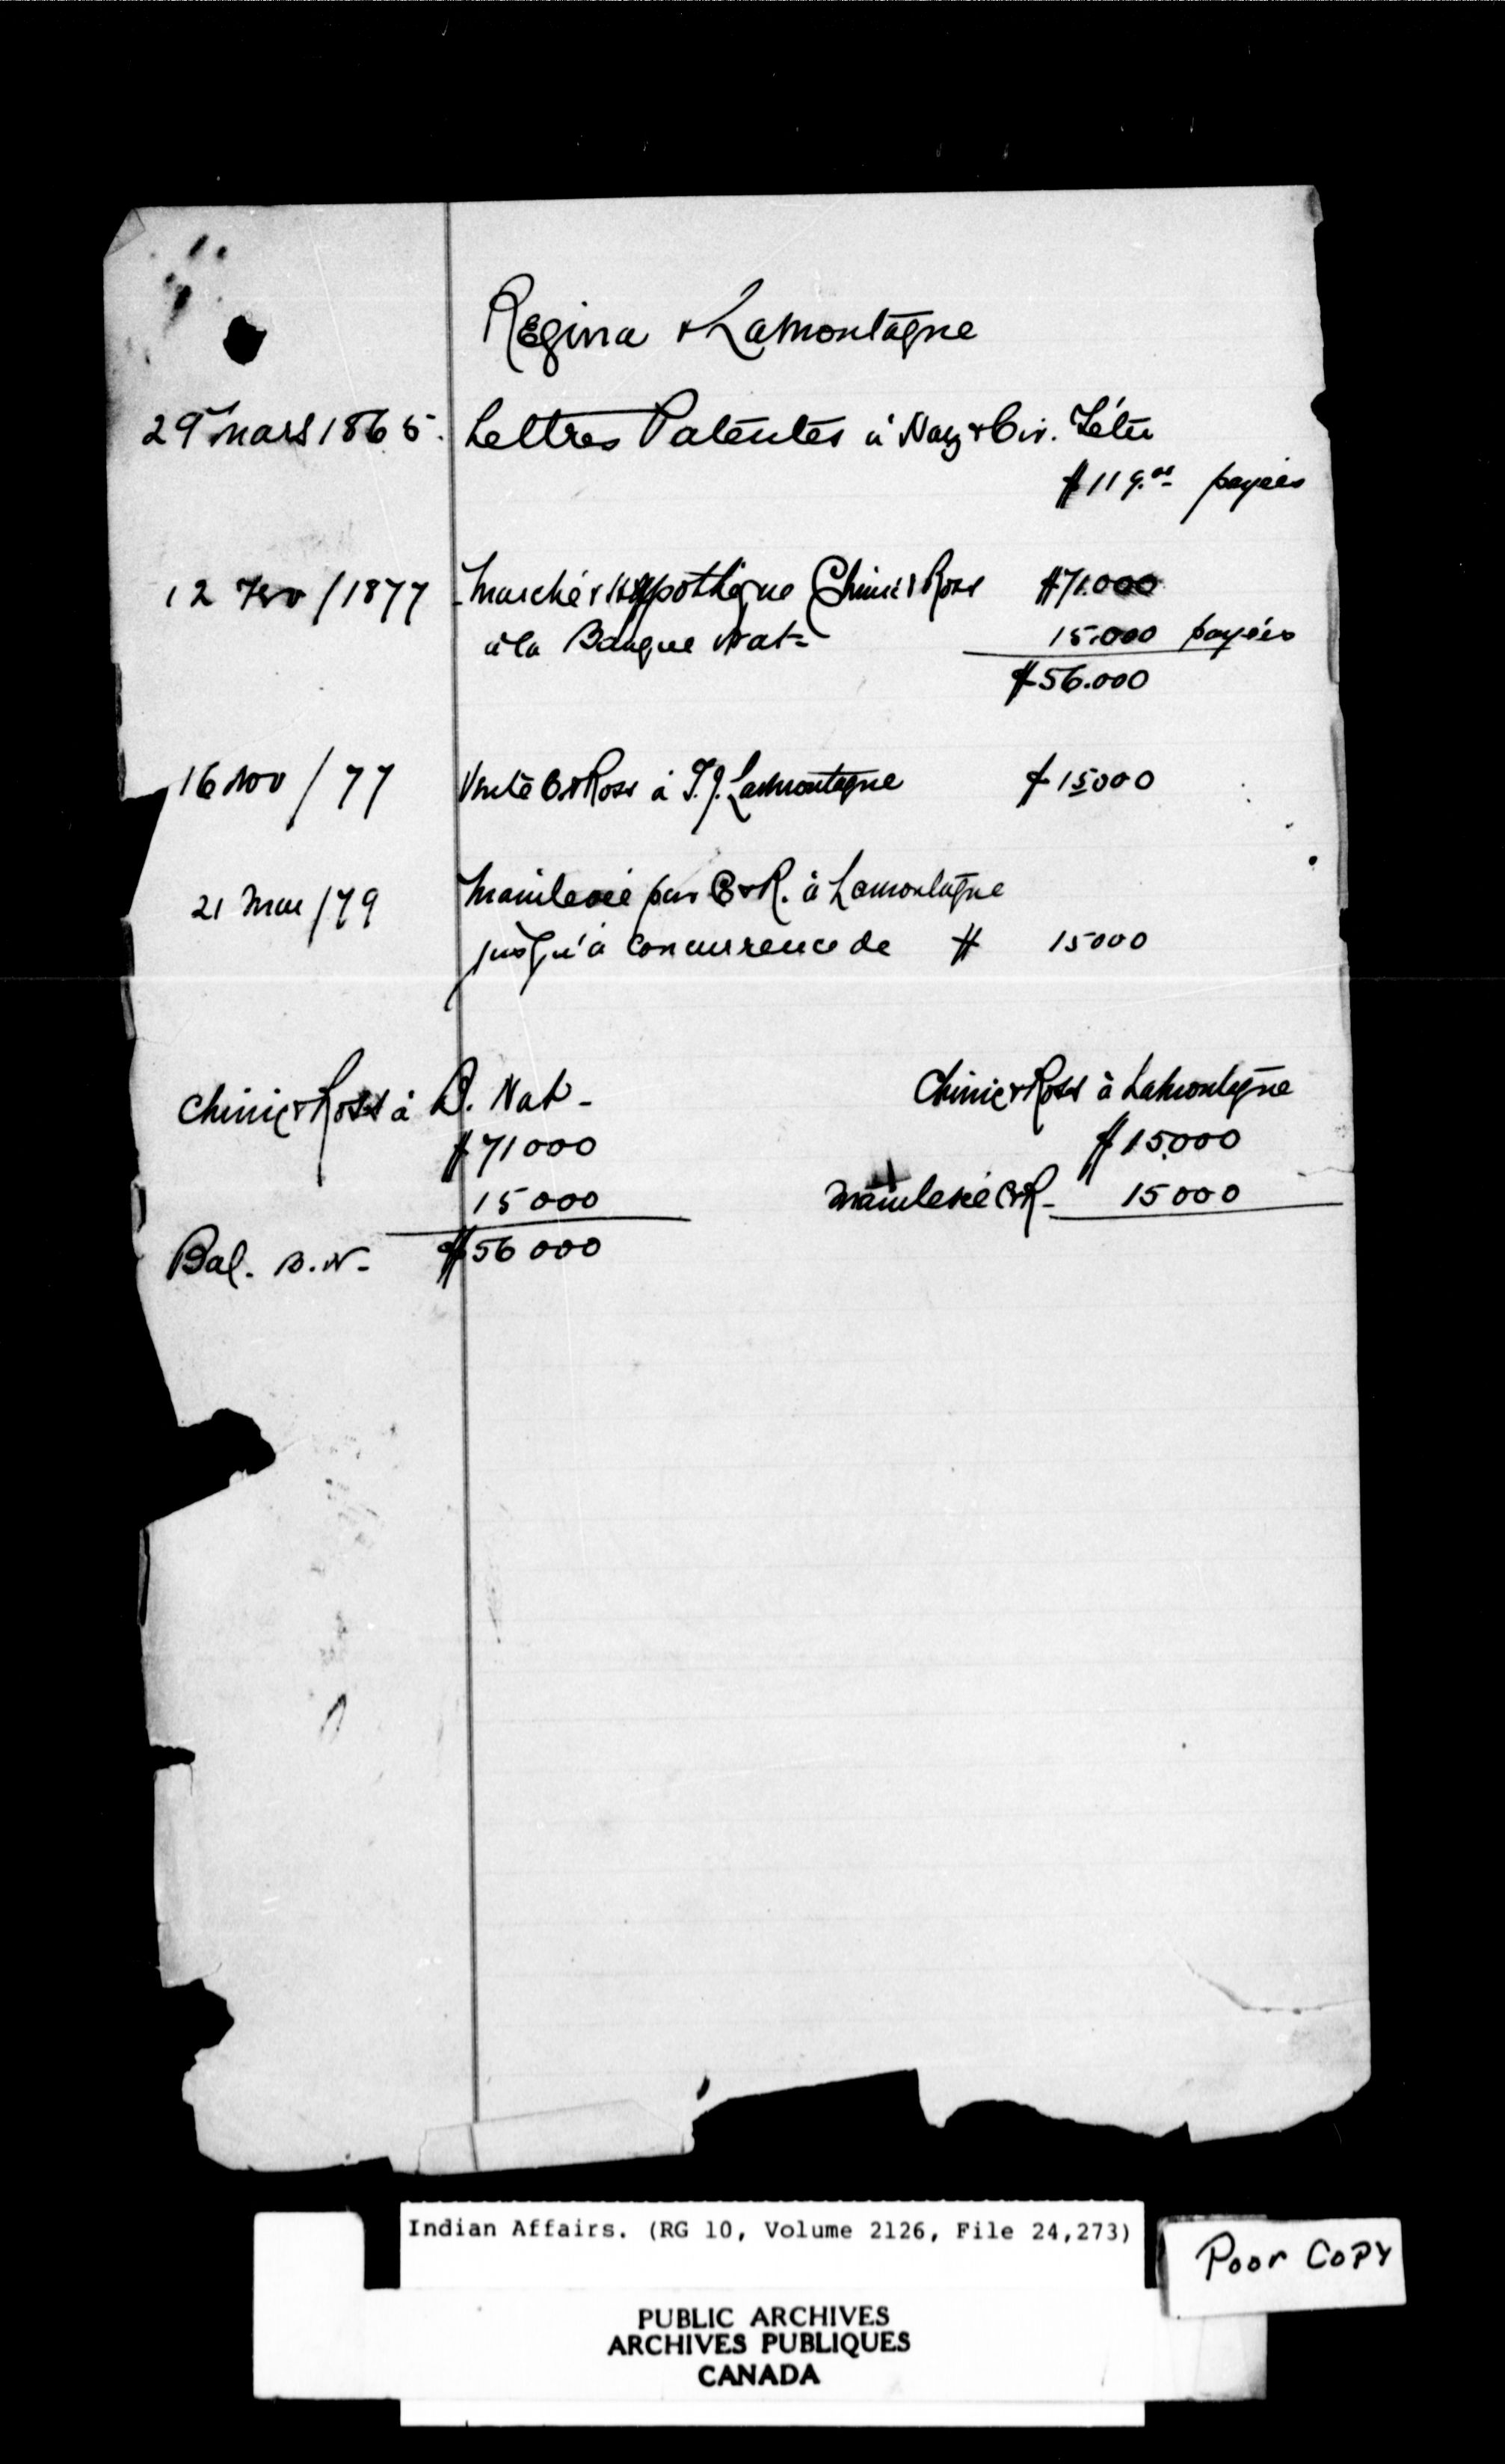 Regina & Lamontagne
29 mars 1865. Lettres Patentes à Naz & Cir. Têtu
$119.00 payées
12 Fev / 1877 Marché & Hypothèque Chinic & Ross $71.000
à la Banque Nat- 15.000 payées
$56.000
16 Nov / 77 Vente C & Ross à T. J. Lamontagne $15000
21 Mai / 79 Mainlevée par C & R. à Lamontagne
jusqu'à concurrence de $ 15000
Chinic & Ross à B. Nat-
$71000
15000
Bal. B.N- $56000
Chinic & Ross à Lamontagne
$15.000
Mainlevée C&R- 15000
Indian Affairs. (RG 10, Volume 2126, File 24,273)
Poor COPY
PUBLIC ARCHIVES
ARCHIVES PUBLIQUES
CANADA